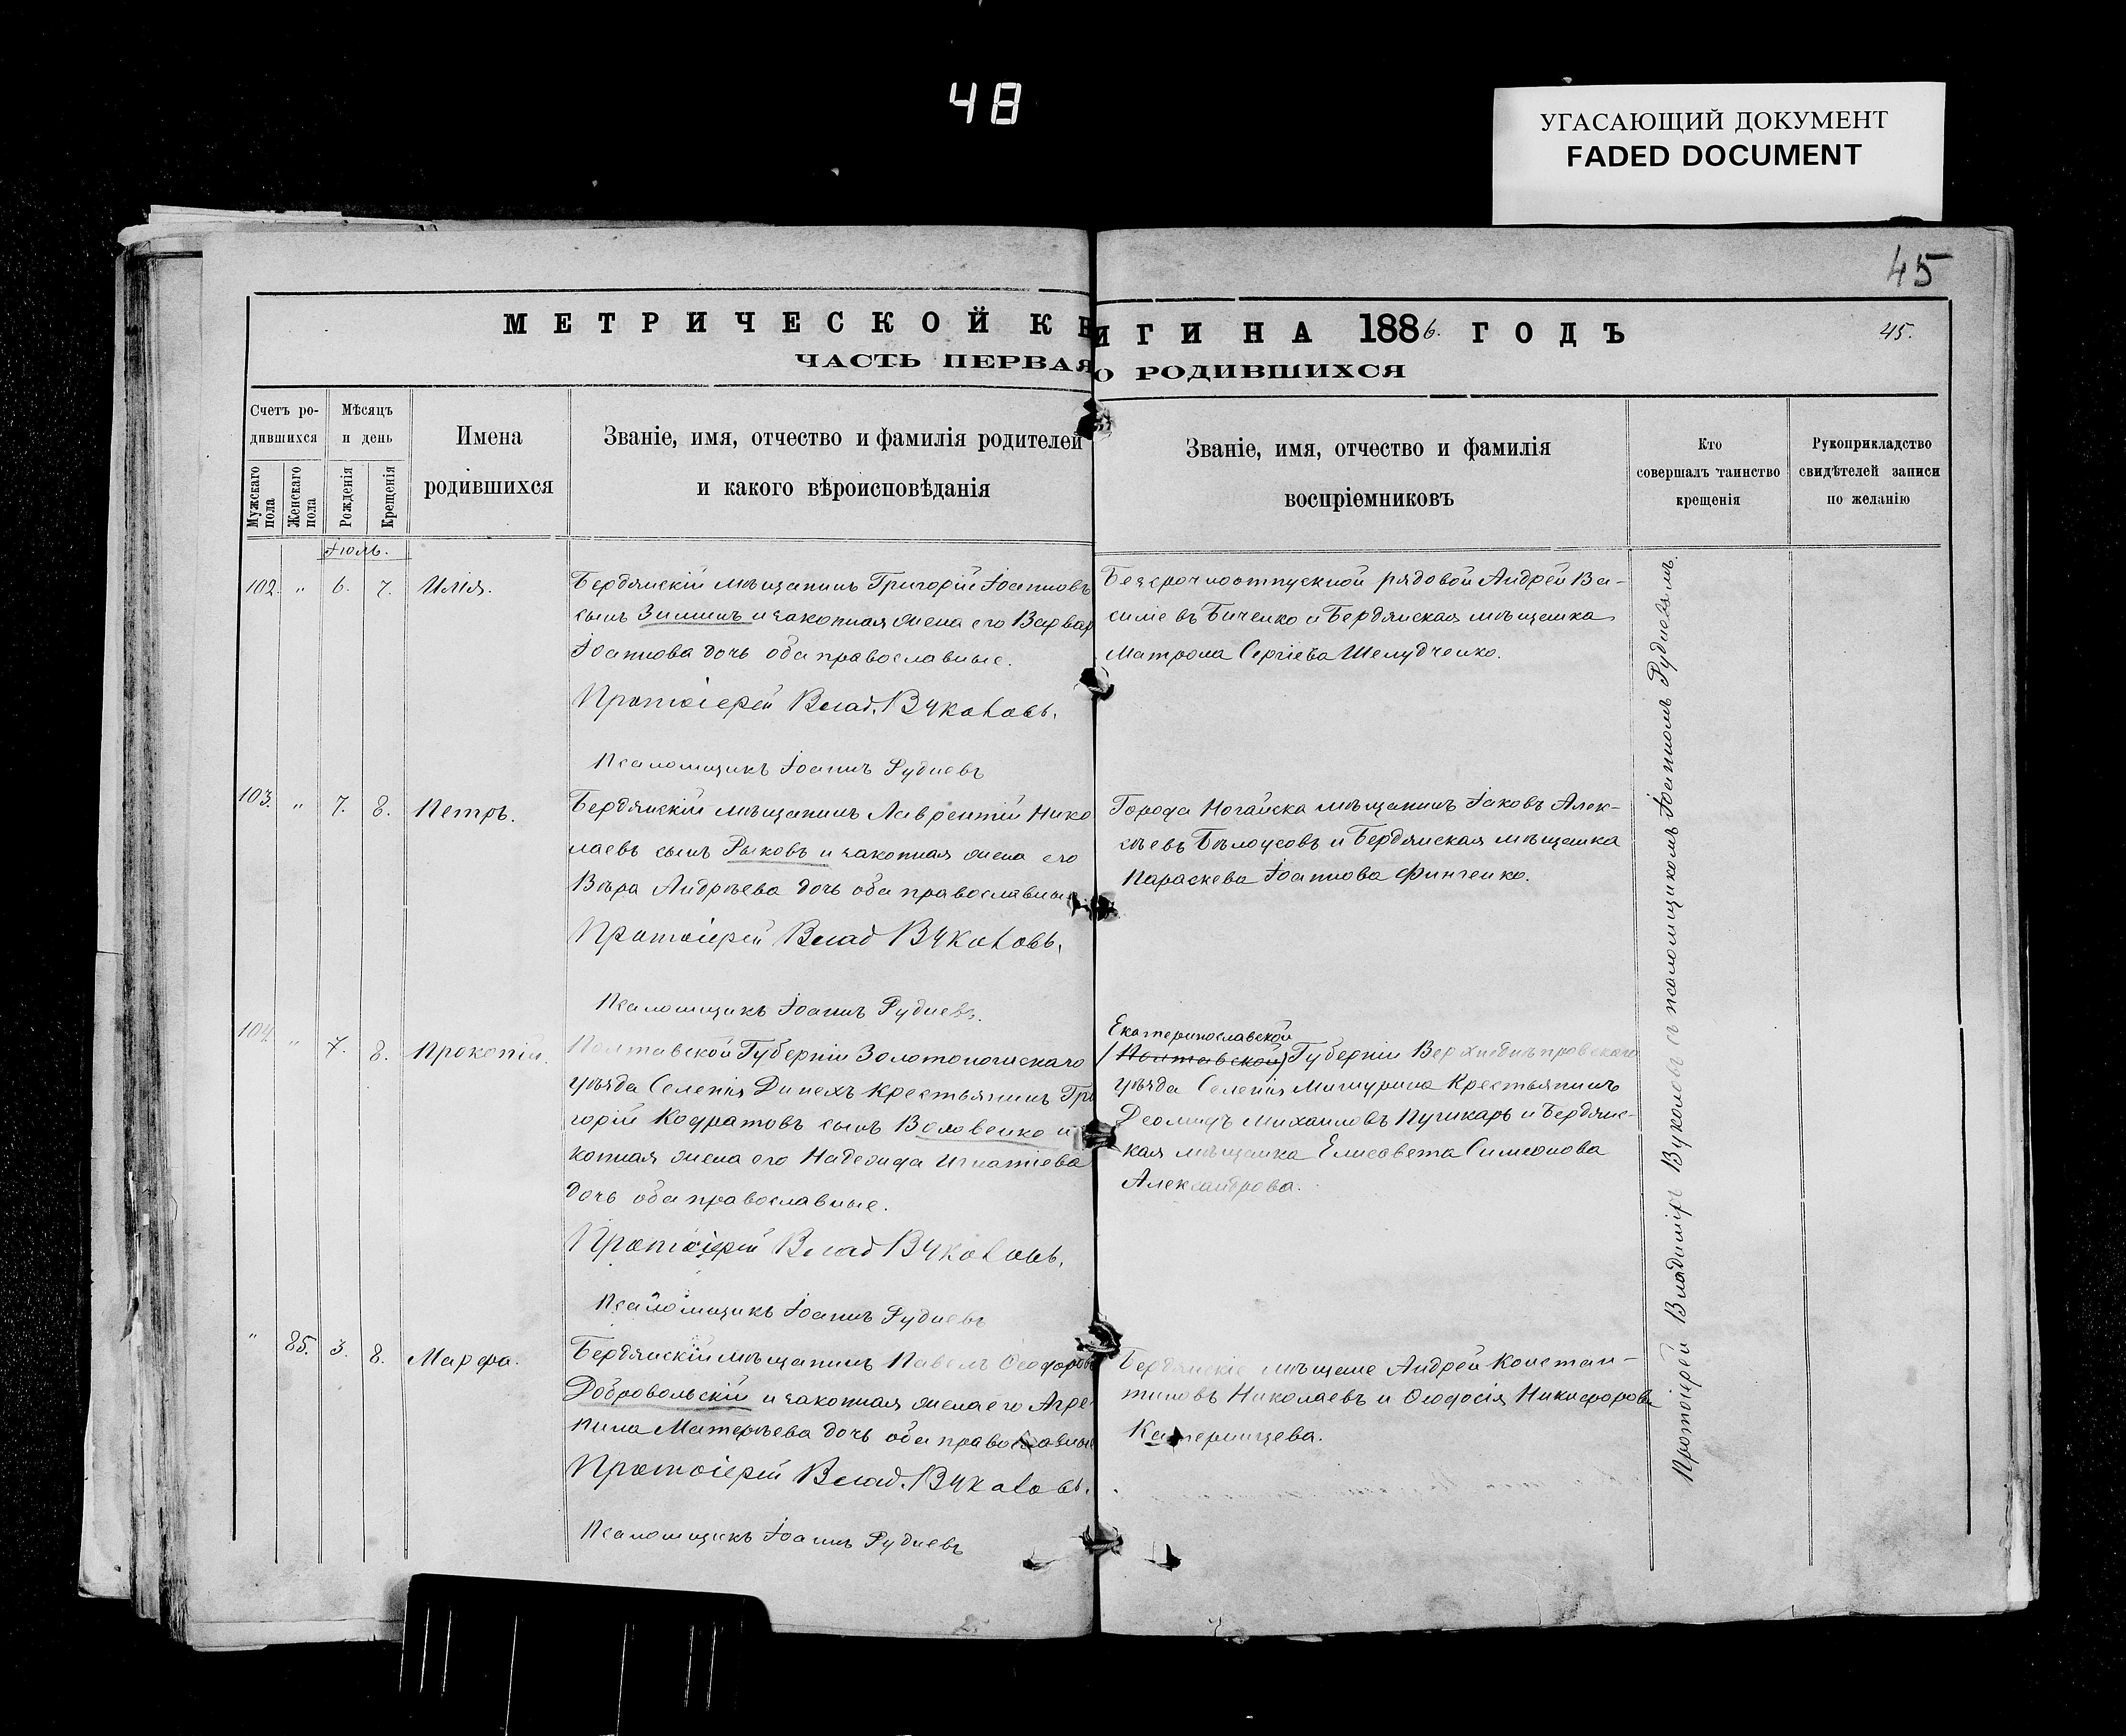 48
УГАСАЮЩИЙ ДОКУМЕНТ
FADED DOCUMENT
45
МЕТРИЧЕСКОЙ КНИГИ НА 1886. ГОДЪ
45.
ЧАСТЬ ПЕРВАЯ О РОДИВШИХСЯ
Счетъ ро-
дившихся
Мѣсяцъ
и день
Имена
родившихся
Званіе, имя, отчество и фамилія родителей
и какого вѣроисповѣданія
Званіе, имя, отчество и фамилія
воспріемниковъ
Кто
совершалъ таинство
крещенія
Рукоприкладство
свидѣтелей записи
по желанію
Мужскаго
пола
Женскаго
пола
Рожденія
Крещенія
Іюль.
102. " 6. 7. Илія.
Бердянскій мѣщанинъ Григорій Іоанновъ
сынъ Зиминъ и законная жена его Варвар
Іоаннова дочь оба православные.
Протоіерей Влад. Вуколовъ.
Псаломщикъ Іоаннъ Рудневъ
Безсрочноотпускной рядовой Андрей Ва-
силіевъ Биченко и Бердянская мѣщанка
Матрона Сергіева Шелудченко.
103. " 7. 8. Петръ.
Бердянскій мѣщанинъ Лаврентій Нико
лаевъ сынъ Рыковъ и законная жена его
Вѣра Андрѣева дочь оба православные
Протоіерей Влад Вуколовъ.
Псаломщикъ Іоаннъ Рудневъ.
Города Ногайска мѣщанинъ Іаковъ Алек-
сѣевъ Бѣлоусовъ и Бердянская мѣщанка
Параскева Іоаннова Финченко.
104. " 7. 8. Прокопій.
Полтавской Губерніи Золотоношскаго
уѣзда Селенія Крестьянинъ Гри
горій Кодратовъ сынъ Воловенко и
конная жена его Надежда Игнатіева
дочь оба православные.
Протоіерей Влад Вуколовъ.
Псаломщикъ Іоаннъ Рудневъ
Екатеринославской
(Полтавской) Губерніи Верхнеднѣпровскаго
уѣзда Селенія Мишурина Крестьянинъ
Деомидъ Михаиловъ Пушкарь и Бердянс-
кая мѣщанка Елисавета Симеонова
Александрова.
" 85. 3. 8. Марфа.
Бердянскій мѣщанинъ Павелъ Ѳеодоровъ
Добровольскій и законная жена его Агре
пина Матѳѣева дочь оба православные
Протоіерей Влад. Вуколовъ.
Псаломщикъ Іоаннъ Рудневъ
Бердянскіе мѣщане Андрей Констан-
тиновъ Николаевъ и Ѳеодосія Никифорова
Катеринцева.
Протоіерей Владиміръ Вуколовъ съ псаломщикомъ Іоанномъ Рудневымъ.